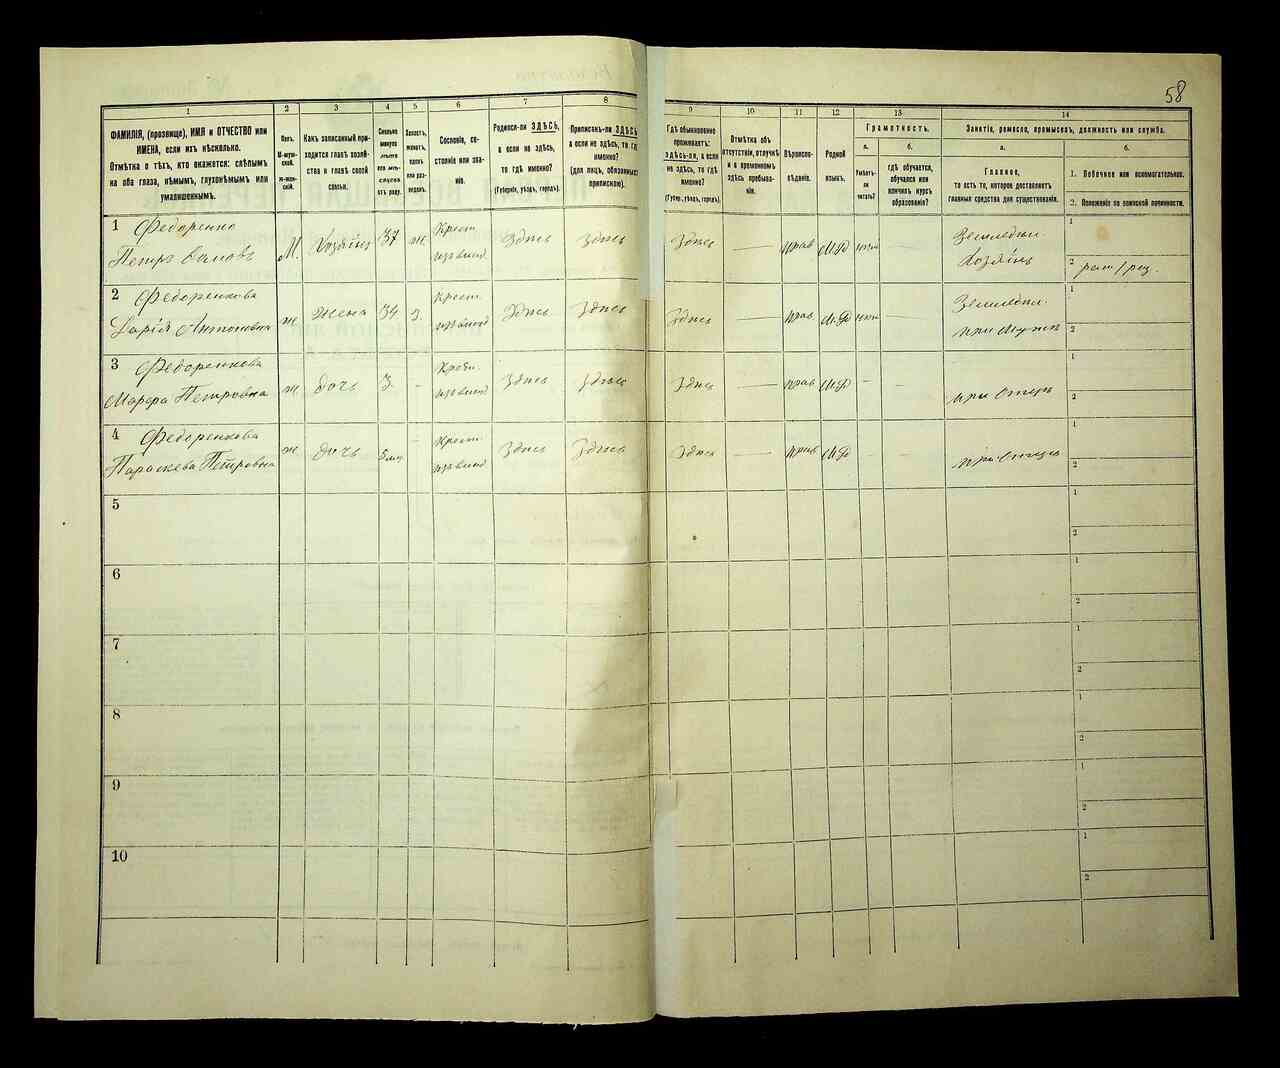 58
1 2 3 4 5 6 7 8 9 10 11 12 13 14
ФАМИЛІЯ, (прозвище), ИМЯ и ОТЧЕСТВО или
ИМЕНА, если ихъ нѣсколько.
Отмѣтка о тѣхъ, кто окажется: слѣпымъ
на оба глаза, нѣмымъ, глухонѣмымъ или
умалишеннымъ.
Полъ.
М-муж-
ской.
Ж-жен-
скій.
Какъ записанный при-
ходится главѣ хозяй-
ства и главѣ своей
семьи.
Сколько
минуло
лѣтъ
или мѣ-
сяцевъ
отъ роду.
Холостъ,
женатъ,
вдовъ
или раз-
веденъ.
Сословіе, со-
стояніе или зва-
ніе.
Родился-ли ЗДѢСЬ,
а если не здѣсь,
то гдѣ именно?
(Губернія, уѣздъ, городъ).
Приписанъ-ли ЗДѢСЬ,
а если не здѣсь, то гдѣ
именно?
(для лицъ, обязанныхъ
припискою).
Гдѣ обыкновенно
проживаетъ:
ЗДѢСЬ-ли, а если
не здѣсь, то гдѣ
именно?
(Губер., уѣздъ, городъ).
Отмѣтка объ
отсутствіи, отлучкѣ
и о временномъ
здѣсь пребыва-
ніи.
Вѣроиспо-
вѣданіе.
Родной
языкъ.
Грамотность.
а.
Умѣетъ-
ли
читать?
б.
гдѣ обучается,
обучался или
кончилъ курсъ
образованія?
Занятіе, ремесло, промыселъ, должность или служба.
а.
Главное,
то есть то, которое доставляетъ
главныя средства для существованія.
б.
1. Побочное или вспомогательное.
2. Положеніе по воинской повинности.
1 Федоренко
Петръ М. Хозяинъ 37 ж. Крест. Здѣсь Здѣсь Здѣсь — прав М.Р — Земледѣл. Хозяинъ
1
2
2 Федоренкова
Дарія Антоновна ж. жена 34 З. Крест. Здѣсь Здѣсь Здѣсь — прав М.Р — Земледѣл. при мужѣ
1
2
3 Федоренкова
Марфа Петровна ж. дочь 3 - Здѣсь Здѣсь Здѣсь — прав М.Р — — при отцѣ
1
2
4 Федоренкова
Параскева Петровна ж. дочь Крест. Здѣсь Здѣсь Здѣсь — прав М.Р при отцѣ
1
2
5
1
2
6
1
2
7
1
2
8
1
2
9
1
2
10
1
2